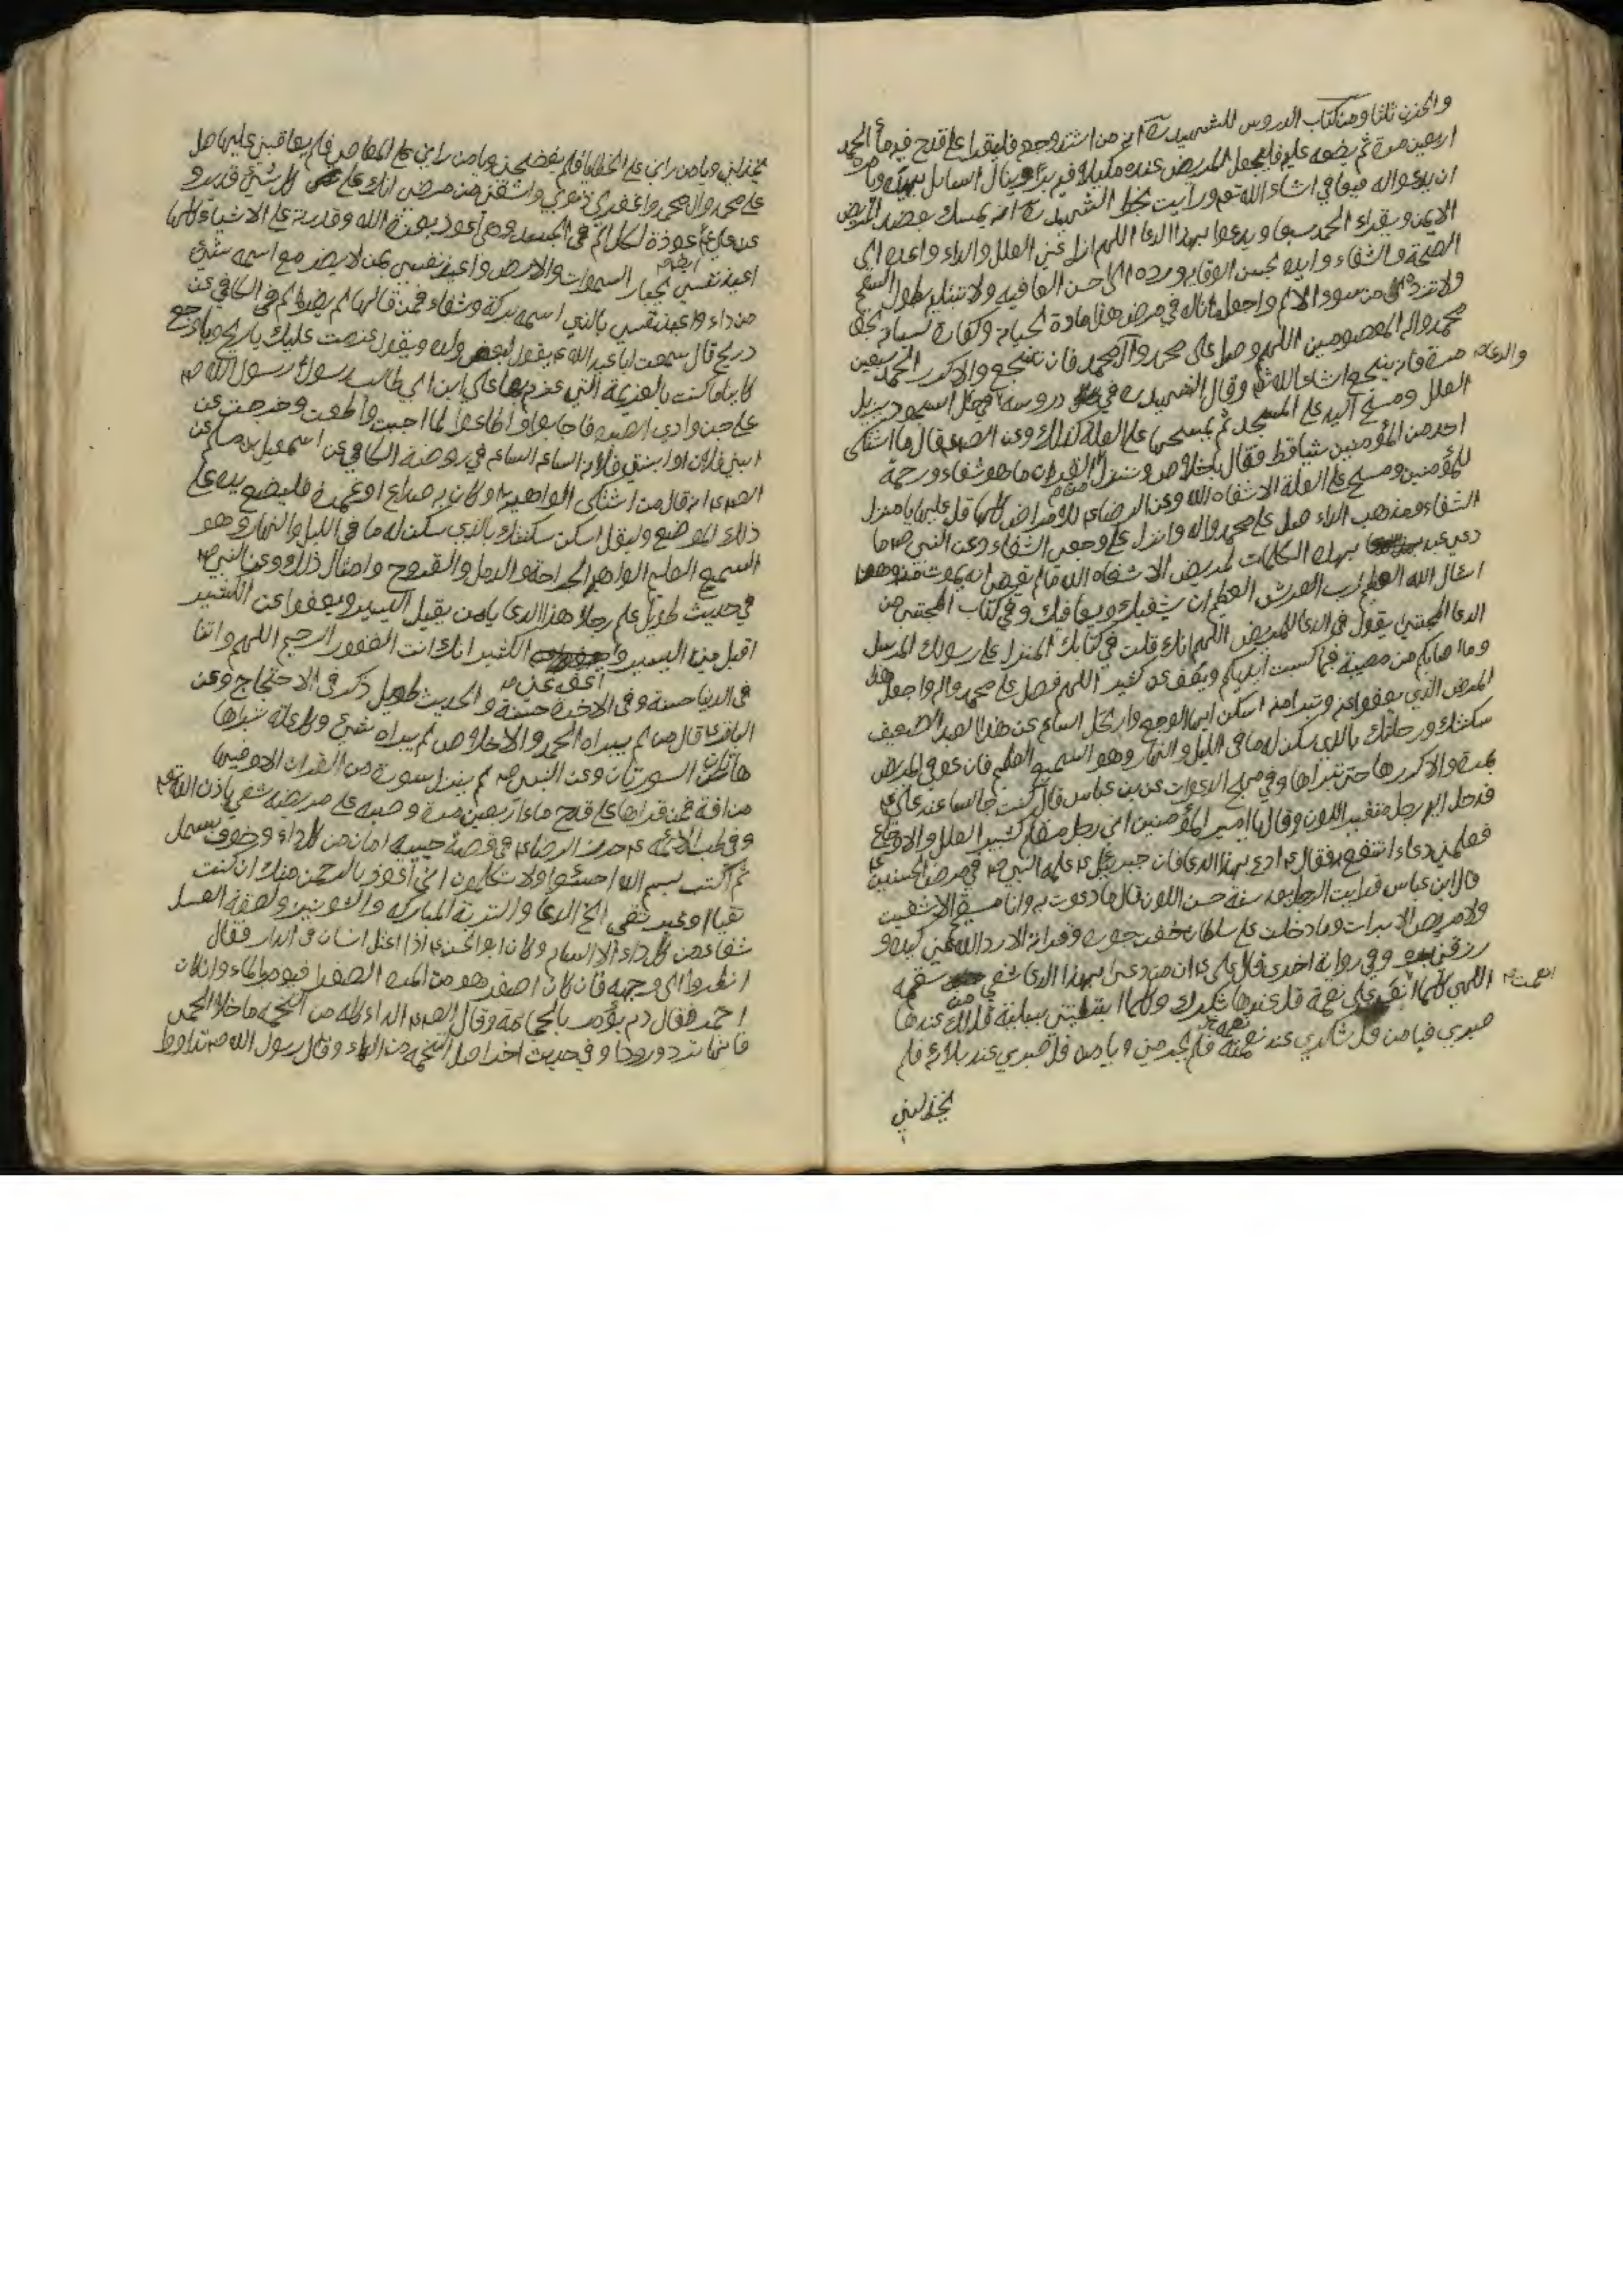 والحزن ثلثا ومن كتاب الدروس للشهيد ره انه من اشتد وجعه فليقرا على قدح فيه ماء الحمد
اربعين مرة ثم يضعه عليه فليجعل المريض عنده مكيلا فيه برا ويناول السائل بيده ويامره
ان يدعو له فيعافى انشاء الله تعم ورايت بخط الشهيد ره انه يمسك بعضد المريض
الايمن ويقراء الحمد سبعا ويدعوا بهذا الدعا اللهم ازل عنه العلل والداء واعده الى
الصحة والشفاء وايده بحسن الوقاية ورده الى حسن العافيه ولا تبتليه بطول السقم
ولا من سوء الالم واجعل ما ناله في مرضه هذا مادة لحياته وكفارة لسيئاته بحق
محمد واله المعصومين اللهم وصل على محمد وآل محمد فان نجع والا كرر الحمد سبعين
مرة فانه ينجع انشاء الله تعم وقال الشهيد ره في دروسه مزيل والدعا
العلل ومسح اليد على المسجد ثم يمسحها على العلة كذلك وعن الصم ع قال ما اشتكى
احد من المؤمنين شيئا قط فقال باخلاص وننزل من القران ما هو شفاء ورحمة
للمؤمنين ومسح على العلة الا شفاه الله وعن الرضا ع للامراض كلها قل عليها يا منزل
الشفاء ومذهب الداء صل على محمد واله وانزل على وجعي الشفاء وعن النبي ص ما
دعى عبد بهذه الكلمات لمريض الا شفاه الله ما لم يقض انه يموت منه وهو
اسئل الله العظيم رب العرش العظيم ان يشفيك ويعافيك وفي كتاب المجتنى من
الدعا المجتبى يقول في الدعا للمريض اللهم انك قلت في كتابك المنزل على رسولك المرسل
وما اصابكم من مصيبة فبما كسبت ايديكم ويعفو عن كثير اللهم فصل على محمد واله واجعل هذا
المرض الذي يعفو عنه وتبرا منه اسكن ايها الوجع وارتحل الساعة عن هذا العبد الضعيف
سكنتك ورحلتك بالذي سكن له ما في الليل والنهار وهو السميع العليم فان عوفي المريض
بمرة والا كررها حتى تبراها وفي مهج الدعوات عن ابن عباس قال كنت جالسا عند علي ع
فدخل اليه رجل متغير اللون وقال يا امير المؤمنين اني رجل مسقام كثير العلل والاوجاع
فعلمني دعاء انتفع به فقال ع ادع بهذا الدعا فان جبرئيل ع علمه النبي ص في مرض الحسنين ع
قال ابن عباس فرايت الرجل بعد سنة حسن اللون قال ما دعوت به وانا سقيم الا شفيت
ولا مريض الا برات وما دخلت على سلطان خفت جوره وقراته الا رد الله عني كيده و
رزقني بره وفي رواية اخرى قال علي ع ان من دعى بهذا الدعا شفي من سقمه
الهي كلما انعمت على نعمة قل عندها شكرك وكلما ابتليتني ببلية قل لك عندها
صبري فيا من قل شكري عند نعمته فلم يحرمني ويا من قل صبري عند بلائه فلم
يخذلني
يخذلني ويا من راني على الخطايا فلم يفضحني ويا من راني على المعاصي فلم يعاقبني عليها صل
على محمد وال محمد واغفر لي ذنوبي واشفني من مرضي انك على كل شيئ قدير و
عن علي ع عوذة لكل الم في الجسد وهي اعوذ بعزة الله وقدرته على الاشياء كلها
اعيذ نفسي بجبار السموات والارض واعيذ نفسي بمن لا يضر مع اسمه شيئ
من داء واعيذ نفسي بالذي اسمه بركة وشفاء فمن قالها لم يضره الم في الكافي عن
ذريح قال سمعت ابا عبد الله ع يقول لبعض ولده ويقول عزمت عليك يا ريح ويا وجع
كائنا ما كنت بالعزيمة التي عزم بها علي ابن ابي طالب رسول رسول الله ص
على جن وادي الصبره فاجابوا واطاعوا لما اجبت واطعت وخرجت عن
ابني فلان او ابنتي فلانه الساعة الساعة في روضة الكافي عن اسمعيل بن مسلم عن
الصم ع انه قال من اشتكى الواهنه او كان به صداع او غمرة فليضع يده على
ذلك الموضع وليقل اسكن سكنتك بالذي سكن له ما في الليل والنهار وهو
السميع العليم الجراحة والدمل والقروح وامثال ذلك وعن النبي ص
في حديث طويل علم رجلا هذا الدعا يا من يقبل اليسير ويعفوا عن الكثير
اقبل مني اليسير واعف عني الكثير انك انت الغفور الرحيم اللهم واتنا
في الدنيا حسنة وفي الاخرة حسنة والحديث طويل ذكر في الاحتجاج وعن
الباقر ع قال من لم يبراه الحمد والاخلاص لم يبراه شيئ وكل علة تبراها
هاتان السورتان وعن النبي ص لم ينزل سورة من القران الا وفيها
منافع فمن قراها على قدح ماء اربعين مرة وصبه على مريضه شفي باذن الله تعم
وفي طب الائمة ع حرز الرضا ع في قصة جيبه امان من كل داء وخوف بسمل
ثم اكتب بسم الله اخسئوا ولا تكلمون اني اعوذ بالرحمن منك ان كنت
تقيا او غير تقي الخ الدعا والتربة المباركه والشونيز ولعقة العسل
شفاء من كل داء الا السام وكان ابو الحسن ع اذا اعتل انسان في الدار فقال
انظروا الى وجهه فان كان اصفر هو من المره الصفرا فيومر بالماء وان كان
احمر فقال دم يؤمر بالحجامة وقال الصم ع الداء كله من التخمة ما خلا الحمى
فانها ترد ورودا وفي حديث اخر اصل التخمه من الماء وقال رسول الله ص تداووا